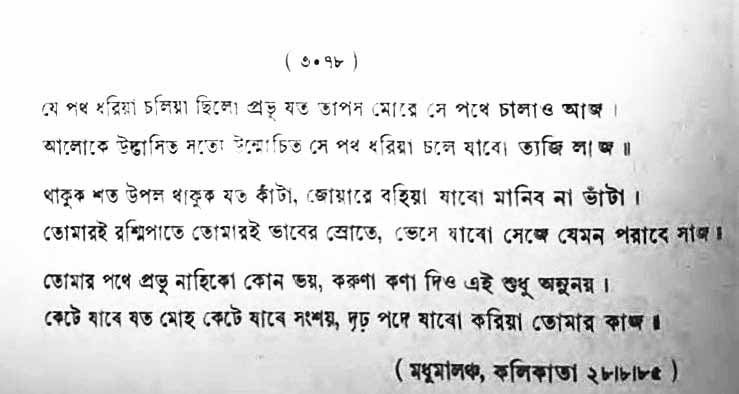 ( ৩০৭৮ )
যে পথ ধরিয়া চলিয়া ছিলো প্রভু যত তাপস মোরে সে পথে চালাও আজ ।
আলোকে উদ্ভাসিত সত্যে উন্মোচিত সে পথ ধরিয়া চলে যাবো ত্যজি লাজ ॥
থাকুক শত উপল থাকুক যত কাঁটা, জোয়ারে বহিয়া যাবো মানিব না ভাঁটা ।
তোমারই রশ্মিপাতে তোমারই ভাবের স্রোতে, ভেসে যাবো সেজে যেমন পরাবে সাজ ॥
তোমার পথে প্রভু নাহিকো কোন ভয়, করুণা কণা দিও এই শুধু অনুনয় ।
কেটে যাবে যত মোহ কেটে যাবে সংশয়, দৃঢ় পদে যাবো করিয়া তোমার কাজ ॥
( মধুমালঞ্চ, কলিকাতা ২৮।৮।৮৫ )